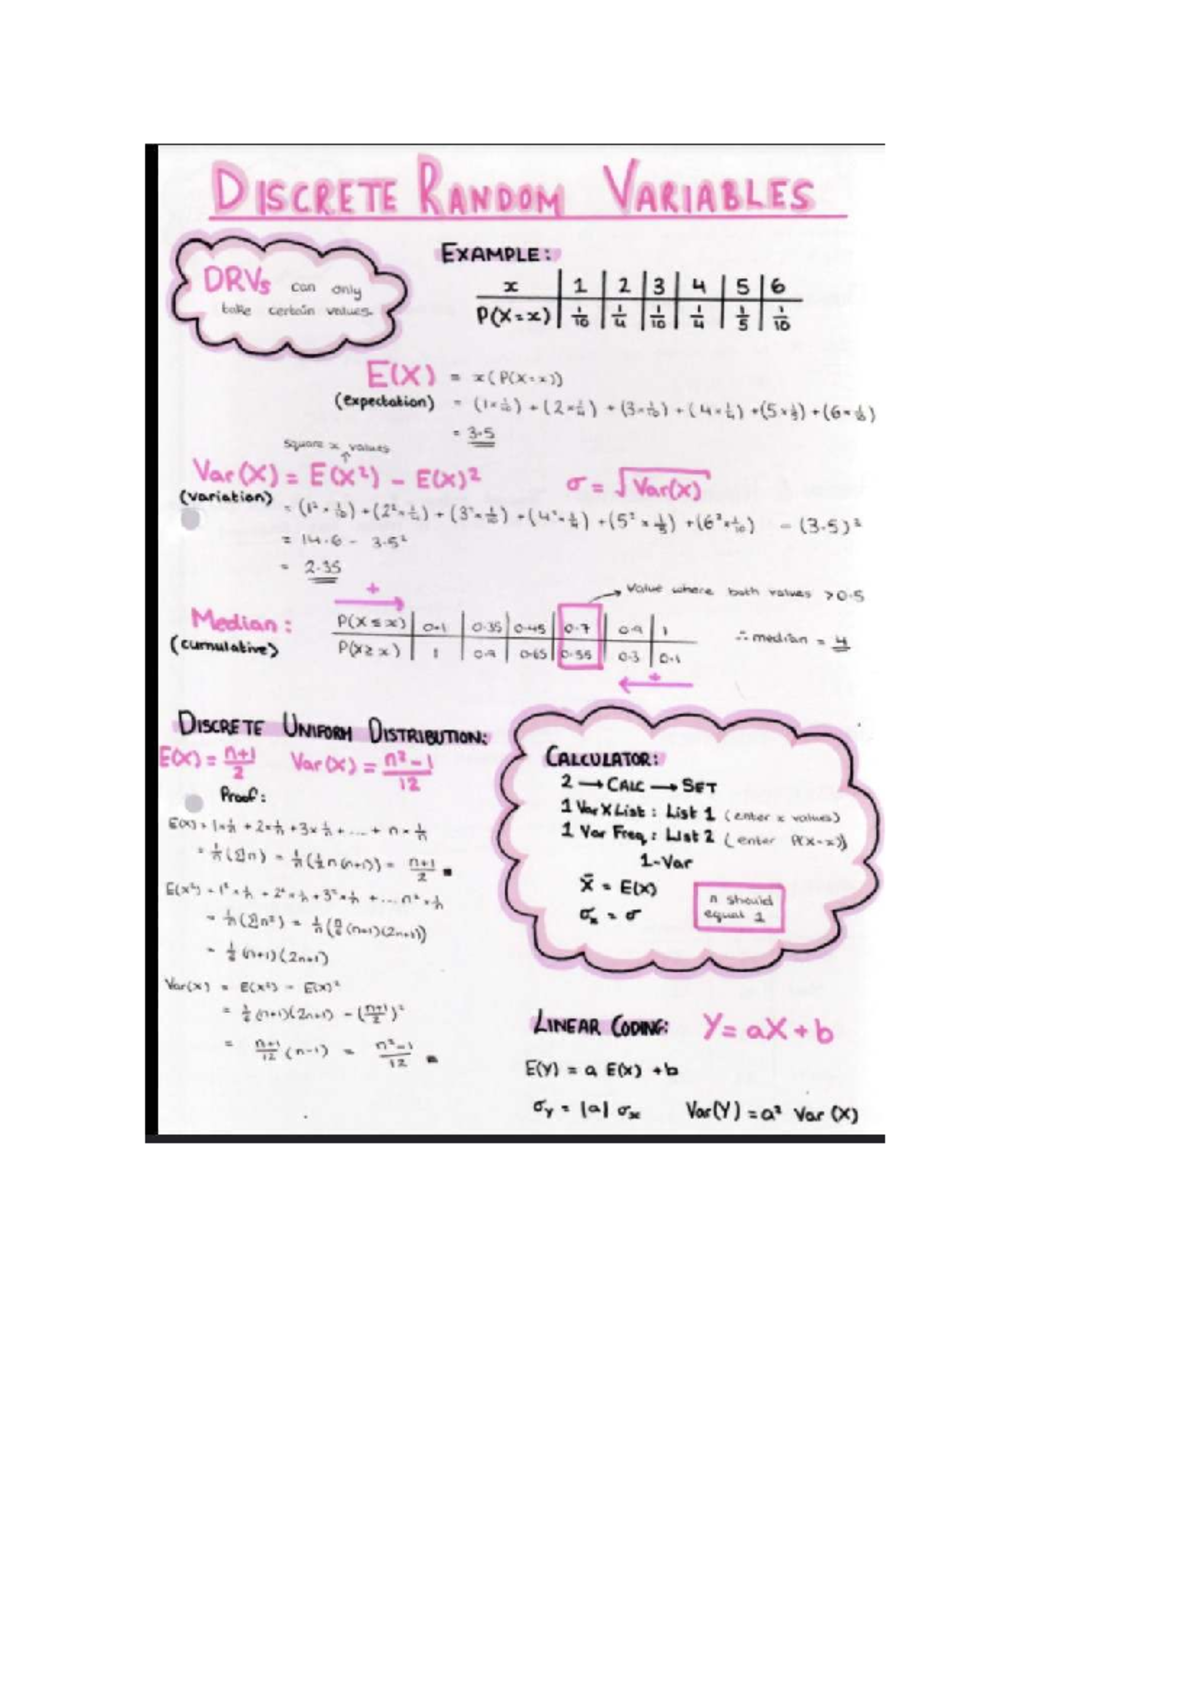 DISCRETE RANDOM VARIABLES
DRVs can only
take certain values.
EXAMPLE:
x | 1 | 2 | 3 | 4 | 5 | 6
P(X=x) | 1/10 | 1/4 | 1/10 | 1/4 | 1/5 | 1/10
E(X) = x(P(X=x))
(expectation) = (1×1/10) + (2×1/4) + (3×1/10) + (4×1/4) + (5×1/5) + (6×1/10)
= 3.5
Square x values
Var(X) = E(X²) - E(X)² σ = √Var(X)
(variation) = (1²×1/10) + (2²×1/4) + (3²×1/10) + (4²×1/4) + (5²×1/5) + (6²×1/10) - (3.5)²
= 14.6 - 3.5²
= 2.35
+
Value where both values >0.5
Median: P(X≤x) | 0.1 | 0.35 | 0.45 | 0.7 | 0.9 | 1
(cumulative) P(X≥x) | 1 | 0.9 | 0.65 | 0.55 | 0.3 | 0.1
∴ median = 4
+
DISCRETE UNIFORM DISTRIBUTION:
E(X) = n+1/2 Var(X) = n²-1/12
Proof:
E(X) = 1×1/n + 2×1/n + 3×1/n + ... + n×1/n
= 1/n(Σn) = 1/n(½n(n+1)) = n+1/2 ■
E(X²) = 1²×1/n + 2²×1/n + 3²×1/n + ... n²×1/n
= 1/n(Σn²) = 1/n(n/6(n+1)(2n+1))
= 1/6(n+1)(2n+1)
Var(X) = E(X²) - E(X)²
= 1/6(n+1)(2n+1) - (n+1/2)²
= n+1/12(n-1) = n²-1/12 ■
CALCULATOR:
2 → CALC → SET
1 Var XList : List 1 (enter x values)
1 Var Freq : List 2 (enter P(X=x))
1-Var
x̄ = E(X)
σx = σ
n should
equal 1
LINEAR CODING: Y = aX + b
E(Y) = a E(X) + b
σY = |a| σx Var(Y) = a² Var(X)